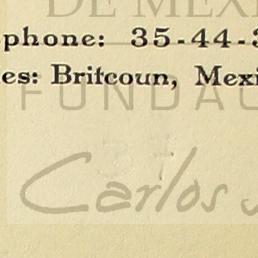 DE MEXI
phone: 35-44-3
es: Britcoun, Mexi
FUNDAC
Carlos